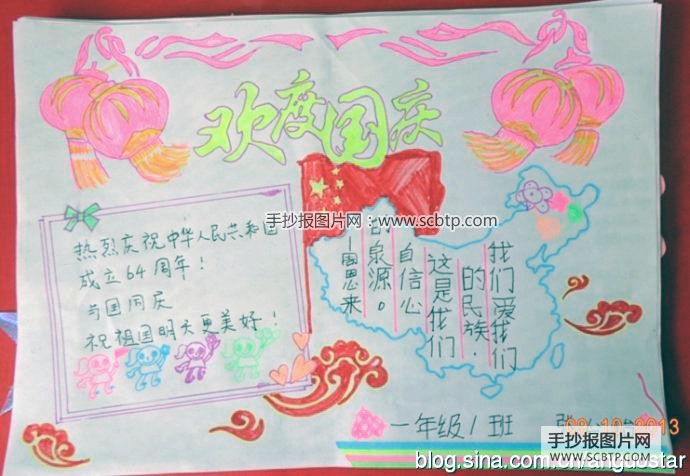 欢度国庆
手抄报图片网:www.scbtp.com
热烈庆祝中华人民共和国
成立64周年!
与国同庆
祝祖国明天更美好!
我们爱我们
的民族,
这是我们
自信心
的泉源。
—周恩来
一年级1班
10 2013
手抄报图片网
WWW.SCBTP.COM
blog.sina.com.cn/anguostar